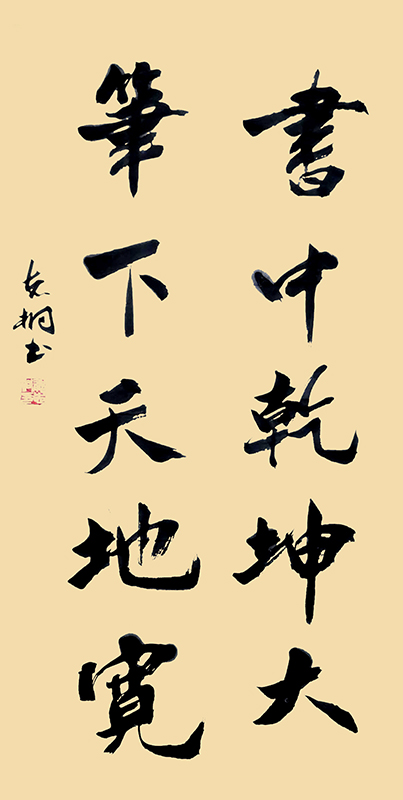 書中乾坤大
筆下天地寬
克桐书